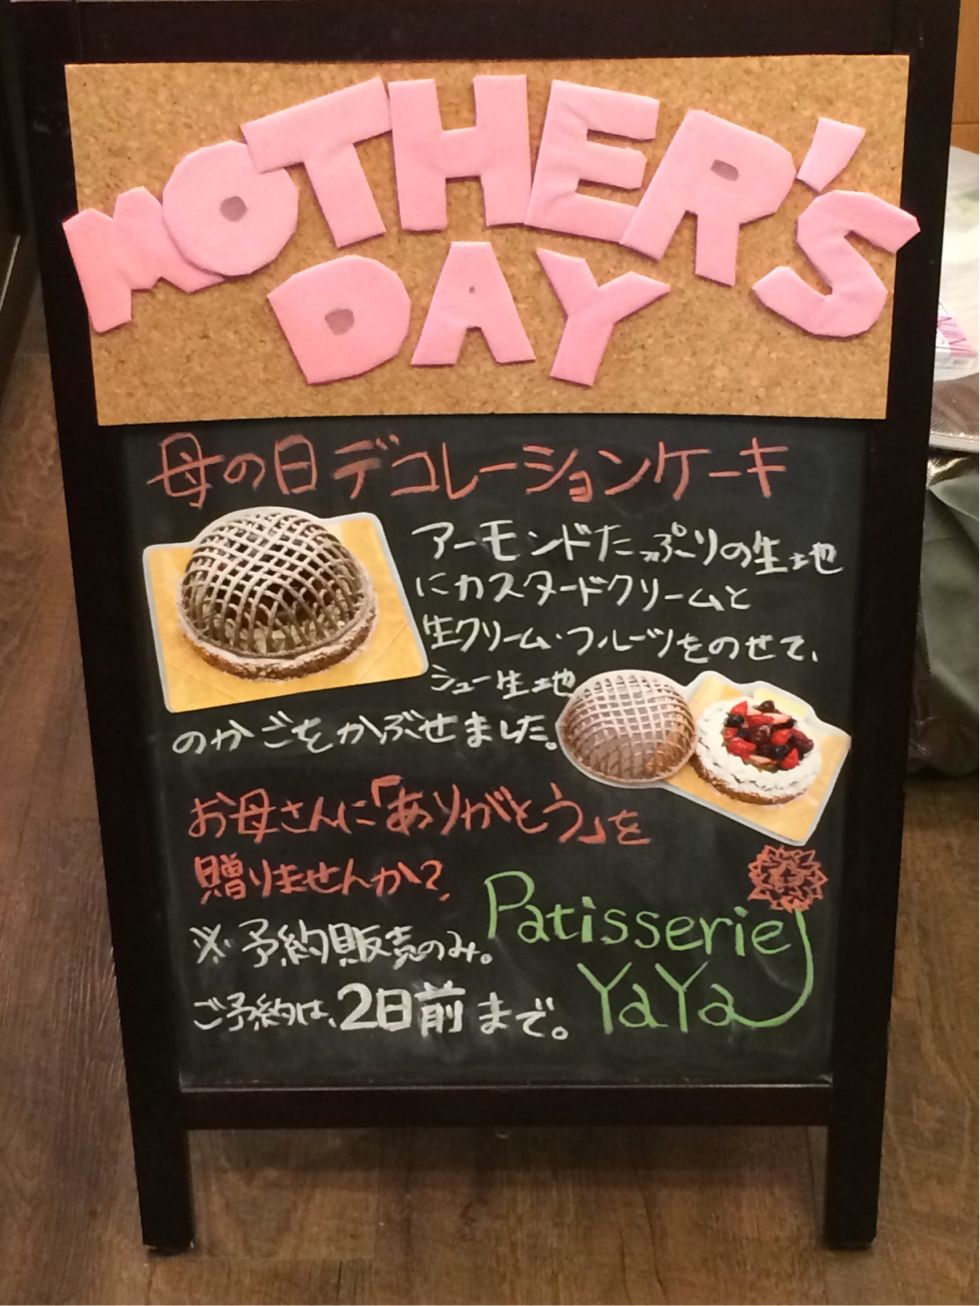 MOTHER'S
DAY
母の日デコレーションケーキ
アーモンドたっぷりの生地
にカスタードクリームと
生クリーム・フルーツをのせて、
シュー生地
のかごをかぶせました。
お母さんに「ありがとう」を
贈りませんか?
※予約販売のみ。
ご予約は、2日前まで。
Patisserie
YaYa